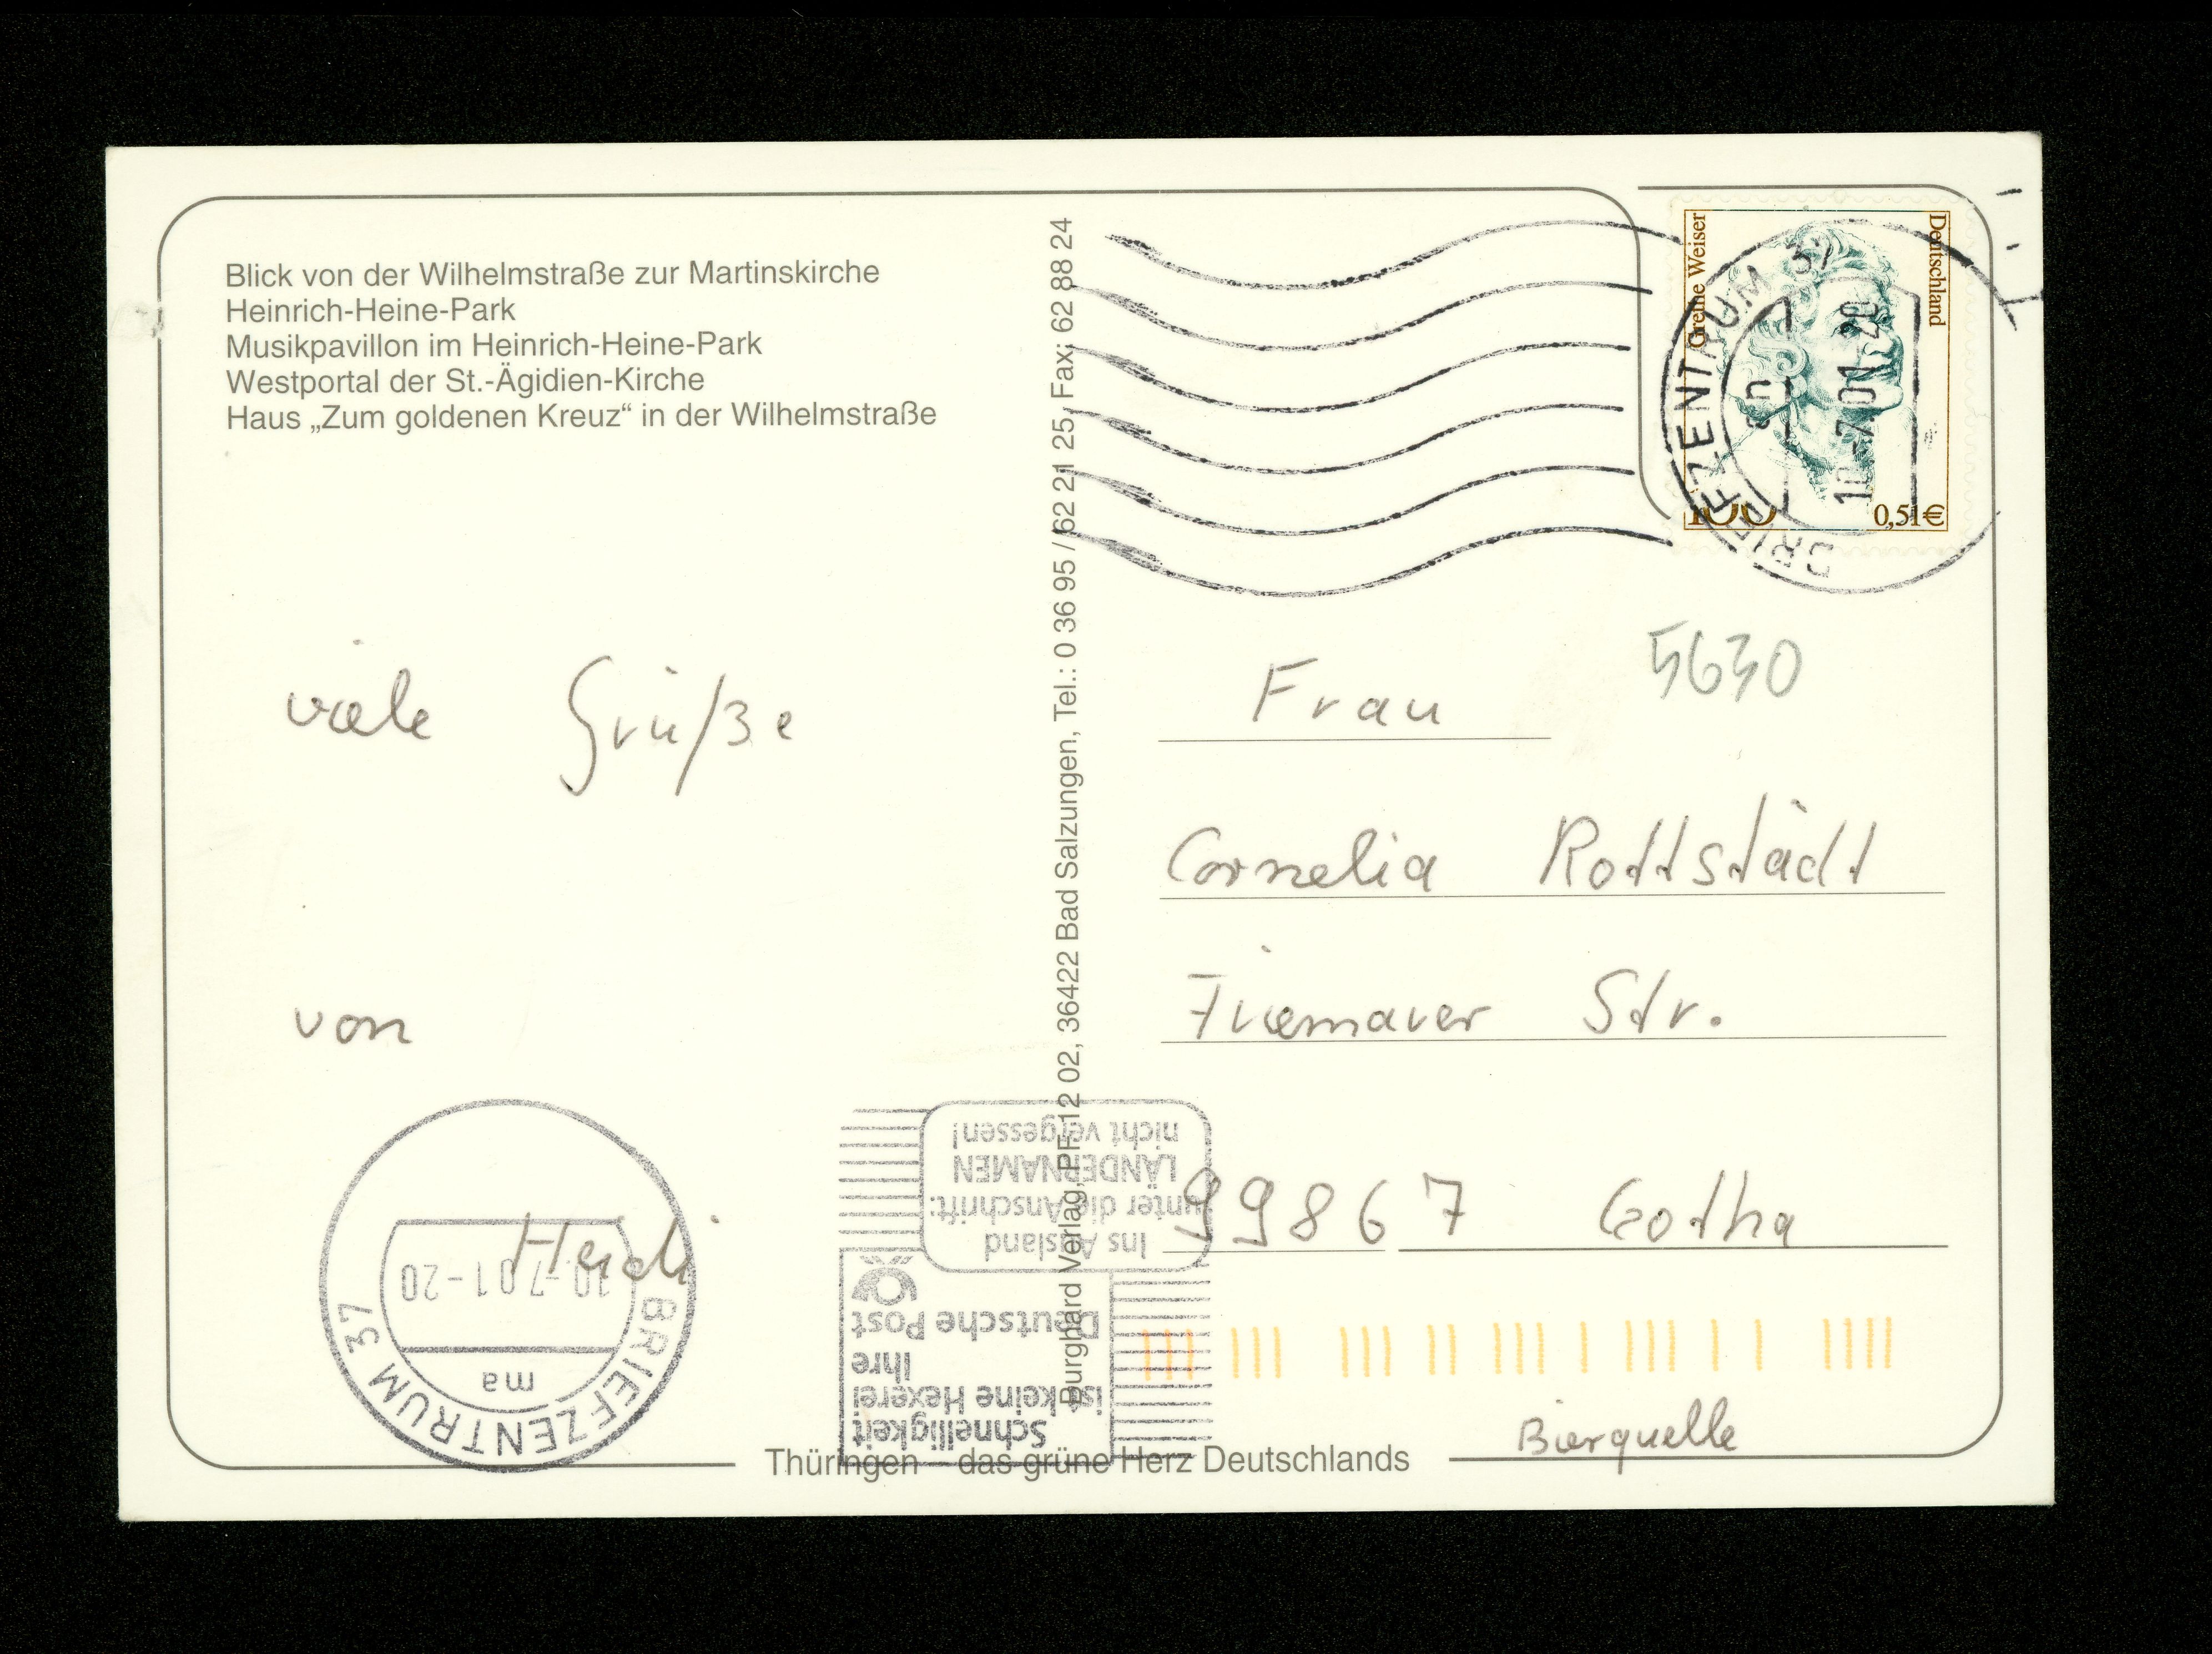 Blick von der Wilhelmstraße zur Martinskirche
Heinrich-Heine-Park
Musikpavillon im Heinrich-Heine-Park
Westportal der St.-Ägidien-Kirche
Haus „Zum goldenen Kreuz“ in der Wilhelmstraße
viele Grüße
von
Heidi
BRIEFZENTRUM 37
10-7.01-20
ma
Burghard Verlag, PF 12 02, 36422 Bad Salzungen, Tel.: 0 36 95 / 62 21 25, Fax: 62 88 24
Ins Ausland
unter die Anschrift:
LÄNDERNAMEN
nicht vergessen!
Schnelligkeit
ist keine Hexerei
Ihre
Deutsche Post
Thüringen – das grüne Herz Deutschlands
Grethe Weiser
Deutschland
100
0,51€
BRIEFZENTRUM 37
10-7.01-20
5630
Frau
Cornelia Rottstädt
Friemarer Str.
99867 Gotha
Bierquelle